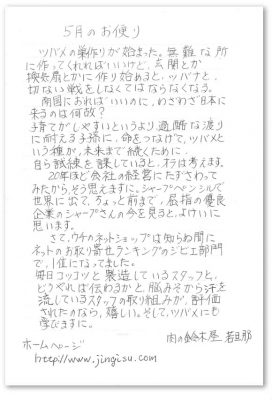 5月のお便り
ツバメの巣作りが始まった。無難な所
に作ってくれればいいけど、玄関とか
換気扇とかに作り始めると、ツバメと、
切ない戦をしなくてはならなくなる。
南国におればいいのに、わざわざ日本に
来るのは何故?
子育てがしやすいというより過酷な渡り
に耐える子孫に、命をつなげて、ツバメと
いう種が、未来まで続くために、
自ら試練を課していると、オラは考えます。
20年ほど会社の経営にたずさわって
みたから、そう思えますに。シャープペンシルで
世界に出て、ちょっと前まで、屈指の優良
企業のシャープさんの今を見ると、よけいに
思います。
さて、ウチのネットショップは知らぬ間に
ネットのお取り寄せランキングのジビエ部門
で、1位になってました。
毎日コツコツと製造しているスタッフと、
どうやれば伝わるかと、脳みそから汗を
流しているスタッフの取り組みが、評価
されたのなら、嬉しい。そして、ツバメにも
学びますに。
肉の鈴木屋 若旦那
ホームページ
http://www.jingisu.com